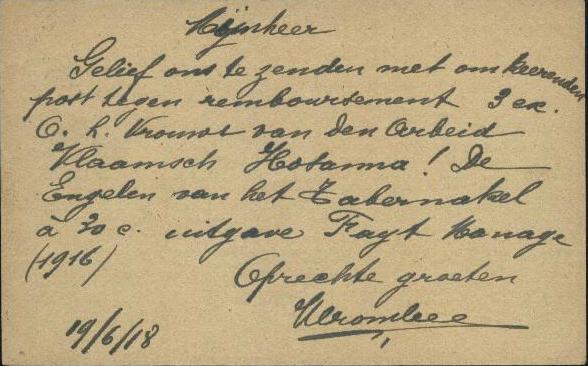 Mijnheer
Gelief ons te zenden met omkeerenden
post tegen remboursement 3 ex.
O. L. Vrouw van den Arbeid
Vlaamsch Hosanna! De
Engelen van het Tabernakel
à 20 c. uitgave Fayt Manage
(1916)
Oprechte groeten
19/6/18